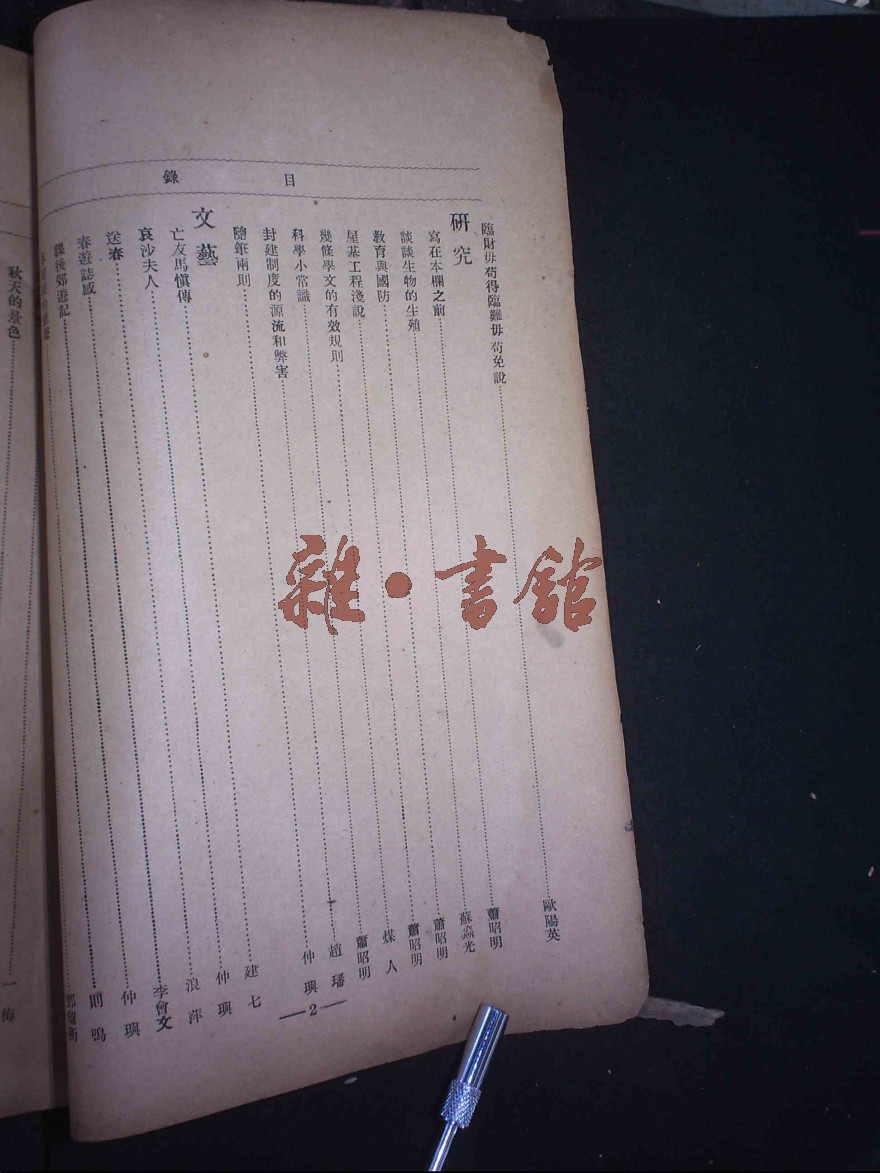 目錄
臨財毋苟得臨難毋苟免說 歐陽英
研究
寫在本欄之前 蕭昭明
談談生物的生殖 蘇焱光
教育與國防 蕭昭明
屋基工程淺說 蕭昭明
幾條學文的有效規則 煤人
科學小常識 蕭昭明
封建制度的源流和弊害 趙璠
隨筆兩則 仲璵
文藝
亡友馬愼傳 建七
哀沙夫人 仲璵
送春 浪萍
春遊誌感 李會文
課後郊遊記 仲璵
則鳴
—2—
秋天的景色 一梅
雜·書館